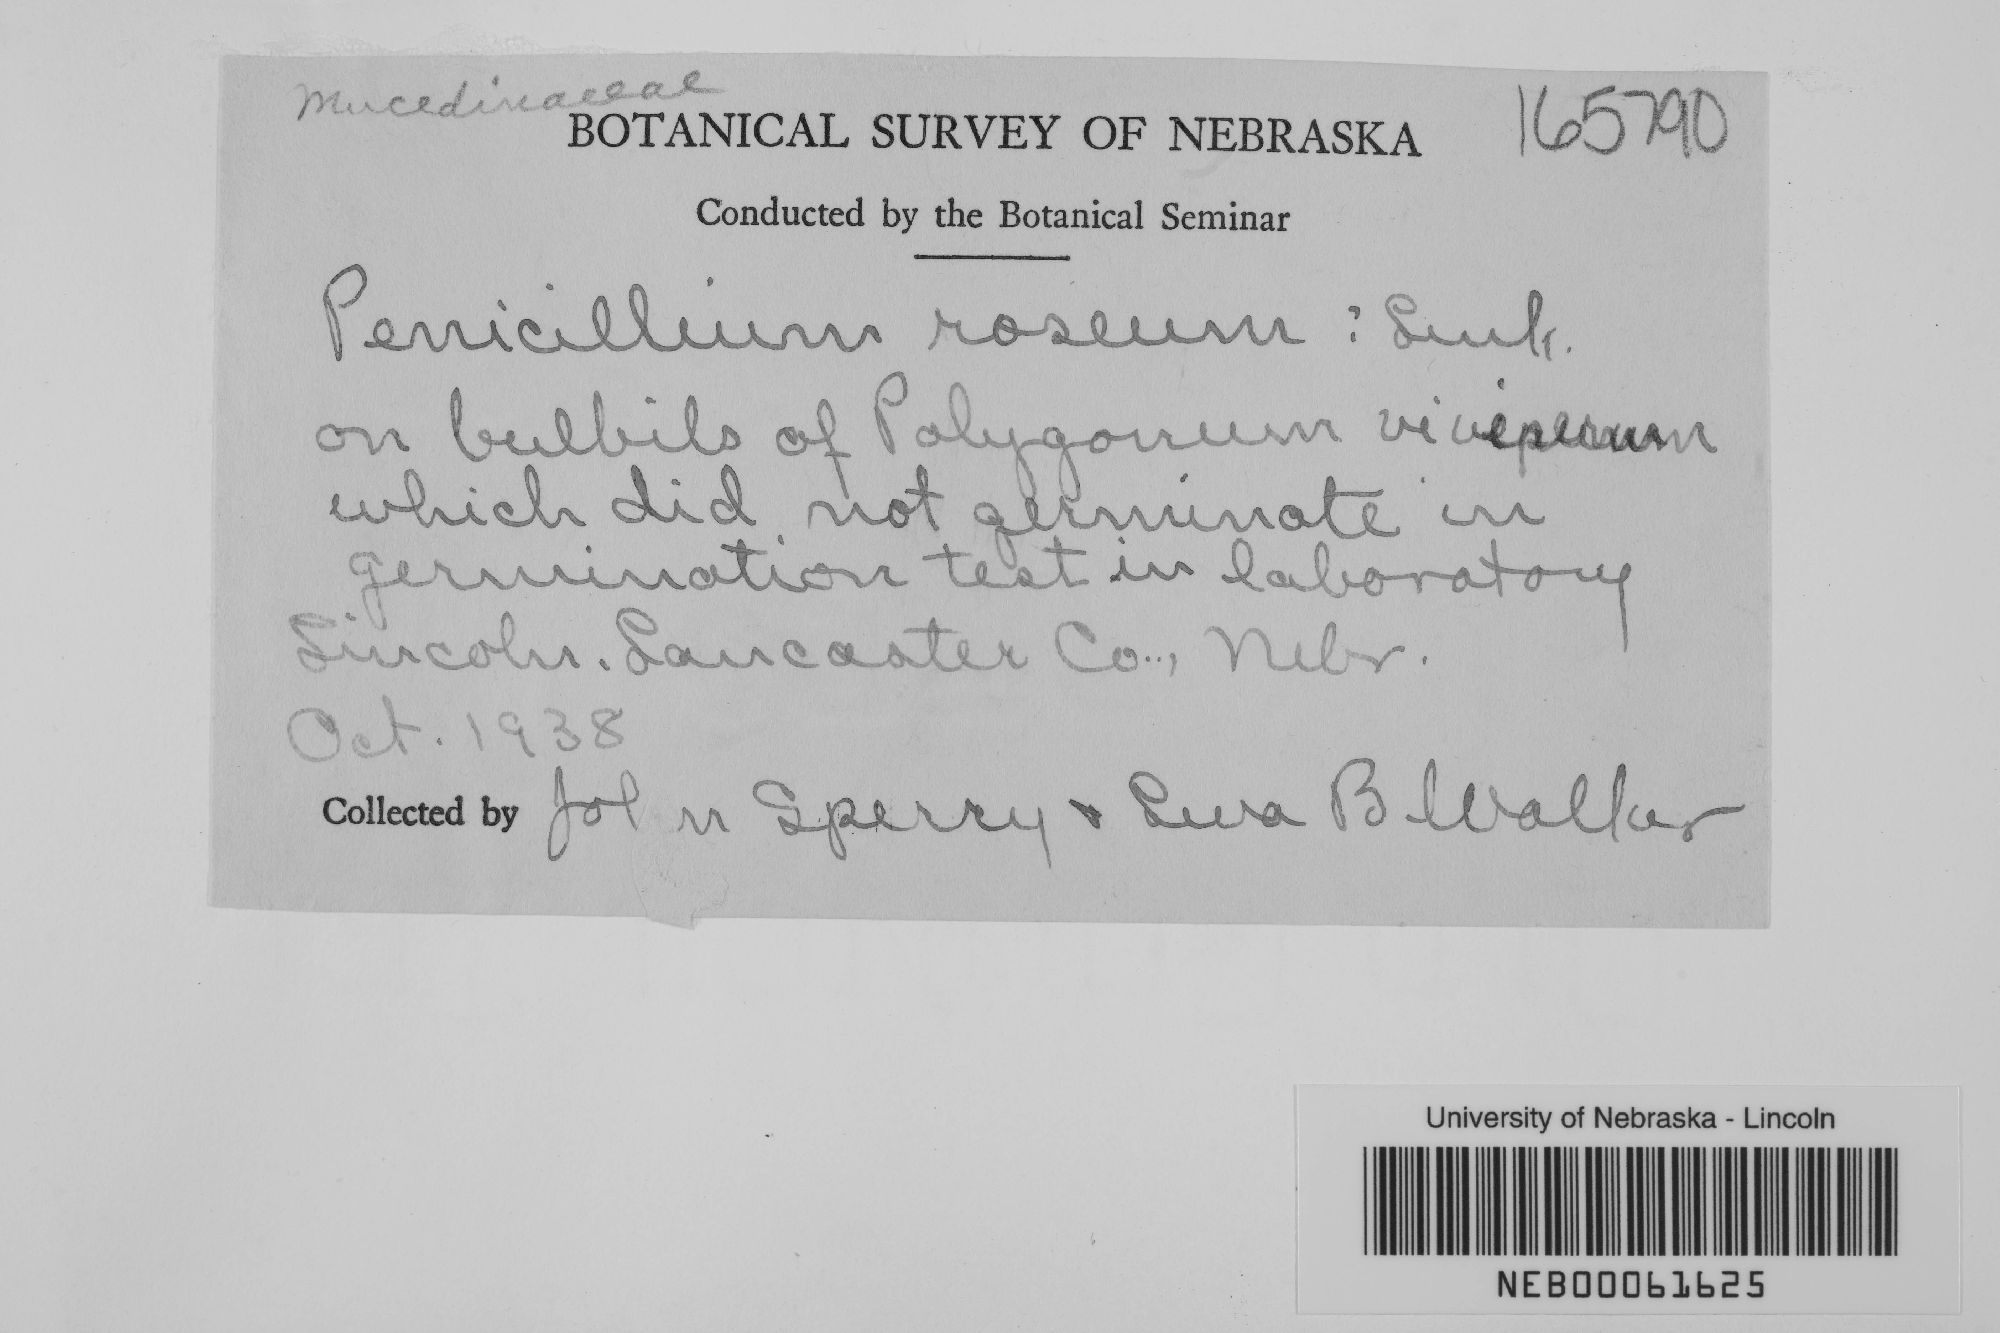 Mucedinaceae
165790
BOTANICAL SURVEY OF NEBRASKA
Conducted by the Botanical Seminar
Penicillium roseum ? Link.
on bulbils of Polygonum viviperum
which did not germinate in
germination test in laboratory
Lincoln. Lancaster Co., Nebr.
Oct. 1938
Collected by John Sperry & Leva B Walker
University of Nebraska - Lincoln
NEB00061625